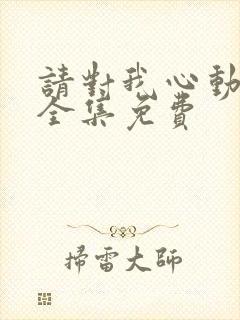 請對我心動
全集免費
掃雷大師